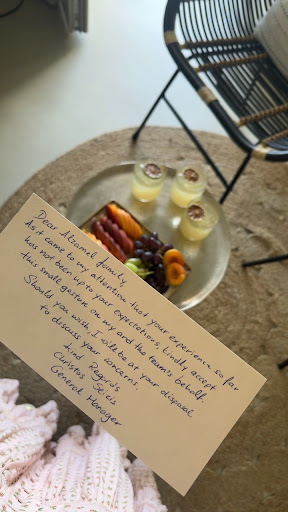 Dear Alzamel family,
As it came to my attention that your experience so far
has not been up to your expectations, kindly accept
this small gesture on my and the team's behalf.
Should you wish, I will be at your disposal
to discuss your concerns.
Kind Regards,
Christos
General Manager